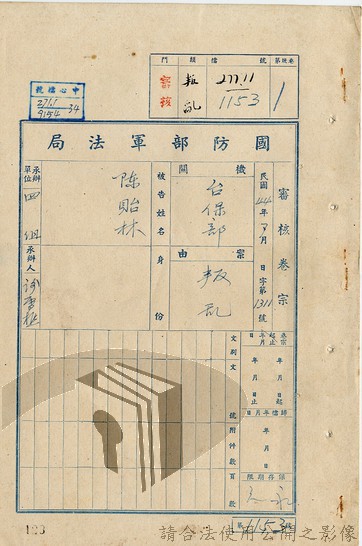 門 類 檔 號 第 宗卷
審核 叛亂 277.11
1153 1
號檔心中
277.11
9154 34
局法軍部防國
審核卷宗
民國44年 月 日 字第1311號
機關 台保部
案由 叛亂
被告姓名 陳貽林
身份
承辦單位 四組
承辦人
卷宗起止年月日
年 月 日起
年 月 日止
歸檔年月日
年 月 日
保存期限
文別
文號
附件
頁數
1153
123
請合法使用公開之影像